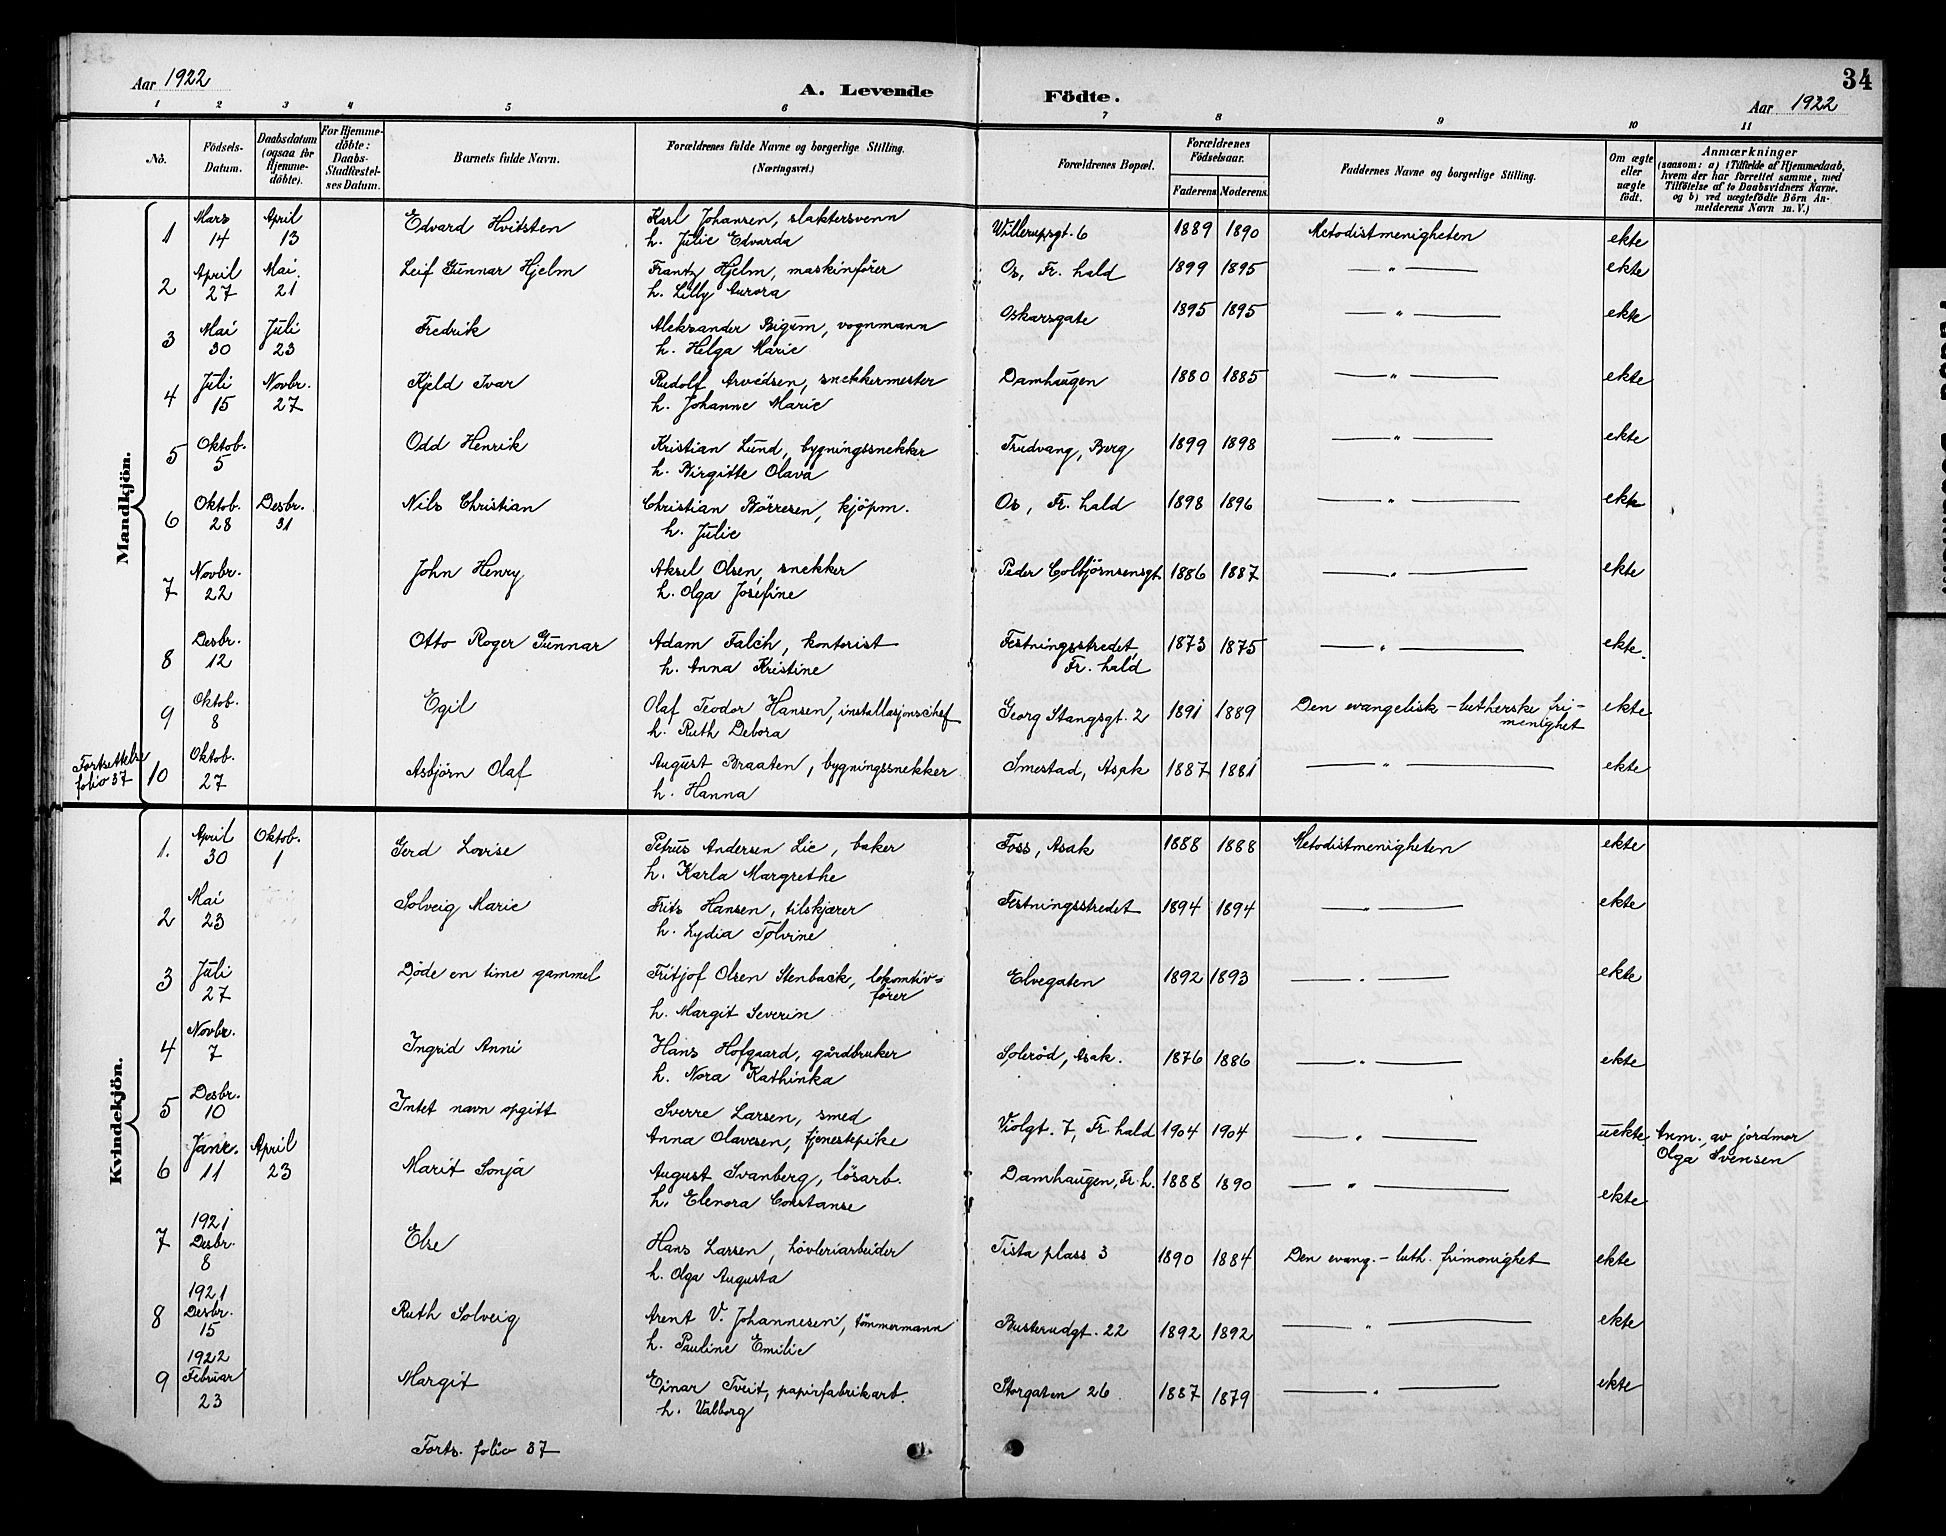 Aar 1922
A. Levende Födte.
34
Aar 1922
1 2 3 4 5 6 7 8 9 10 11
No.
Födsels-Datum.
Daabsdatum (ogsaa for Hjemme-döbte).
For Hjemme-döbte: Daabs-Stadfæstel-ses Datum.
Barnets fulde Navn.
Forældrenes fulde Navne og borgerlige Stilling. (Næringsvei.)
Forældrenes Bopæl.
Forældrenes Födselsaar.
Faderens Moderens.
Faddernes Navne og borgerlige Stilling.
Om ægte eller uægte födt.
Anmærkninger
(saasom: a) i Tilfælde af Hjemmedaab,
hvem der har forrettet samme, med
Tilföielse af to Daabsvidners Navne.
og b) ved uægtefödte Börn An-
melderens Navn m. V.)
Mandkjön.
1 Mars 14 April 13 Edvard Hvitsten Karl Johansen, slaktersvenn Willerupsgt. 6 1889 1890 Metodistmenigheten ekte
h. Julie Edvarda
2 April 27 Mai 21 Leif Gunnar Hjelm Frantz Hjelm, maskinfører Os, Fr. hald 1899 1895 — " — ekte
h. Lilly Aurora
3 Mai 30 Juli 23 Fredrik Aleksander Bigum, vognmann Oskarsgate 1895 1895 — " — ekte
h. Helga Marie
4 Juli 15 Novbr. 27 Kjeld Ivar Rudolf Arvedsen, snekkermester Damhaugen 1880 1885 — " — ekte
h. Johanne Marie
5 Oktob. 5 Odd Henrik Kristian Lund, bygningssnekker Trudvang, Berg 1899 1898 — " — ekte
h. Birgitte Olava
6 Oktob. 28 Desbr. 31 Nils Christian Christian Børresen, kjöpm. Os, Fr. hald 1898 1896 — " — ekte
h. Julie
7 Novbr. 22 John Henry Aksel Olsen, snekker Peder Colbjörnsensgt. 1886 1887 — " — ekte
h. Olga Josefine
8 Desbr. 12 Otto Roger Gunnar Adam Falch, kontorist Festningsstredet, 1873 1875 — " — ekte.
h. Anna Kristine Fr. hald
9 Oktob. 8 Egil Olaf Teodor Hansen, installasjonschef Georg Stangsgt. 2 1891 1889 Den evangelisk-lutherske fri- ekte
h. Ruth Debora menighet
Fortsettelse folio 37
10 Oktob. 27 Asbjörn Olaf August Braaten, bygningssnekker Smestad, Asak 1887 1881 — " — ekte
h. Hanna
Kvindekjön.
1. April 30 Oktob. 1 Gerd Lovise Petrus Andersen Lie, baker Foss, Asak 1888 1888 Metodistmenigheten ekte
h. Karla Margrethe
2 Mai 23 Solveig Marie Frits Hansen, tilskjærer Festningsstredet 1894 1894 — " — ekte
h. Lydia Tolvine
3 Juli 27 Døde en time gammel Fritjof Olsen Stenback, lokomotiv- Elvegaten 1892 1893 — " — ekte
fører
h. Margit Severin
4 Novbr. 7 Ingrid Anni Hans Hofgaard, gårdbruker Solerød, Asak. 1876 1886 — " — ekte
h. Nora Kathinka
5 Desbr. 10 Intet navn opgitt Sverre Larsen, smed Violgt. 7, Fr. hald 1904 1904 — " — uekte Anm. av jordmor
Anna Olavesen, tjenestepike Olga Svensen
6 Janr. 11 April 23 Marit Sonja August Svanberg, løsarb. Damhaugen, Fr. h. 1888 1890 — " — ekte
h. Elenora Constanse
7 1921 Desbr. 8 Else Hans Larsen, hövleriarbeider Tista plass 3 1890 1884 Den evang.-luth. frimenighet ekte
h. Olga Augusta
8 1921 Desbr. 15 Ruth Solveig Arent V. Johannesen, tømmermann Busterudgt. 22 1892 1892 — " — ekte
h. Pauline Emilie
9 1922 Februar 23 Margit Einar Tveit, papirfabrikarb. Storgaten 26 1887 1879 — " — ekte
h. Valborg
Forts. folio 37